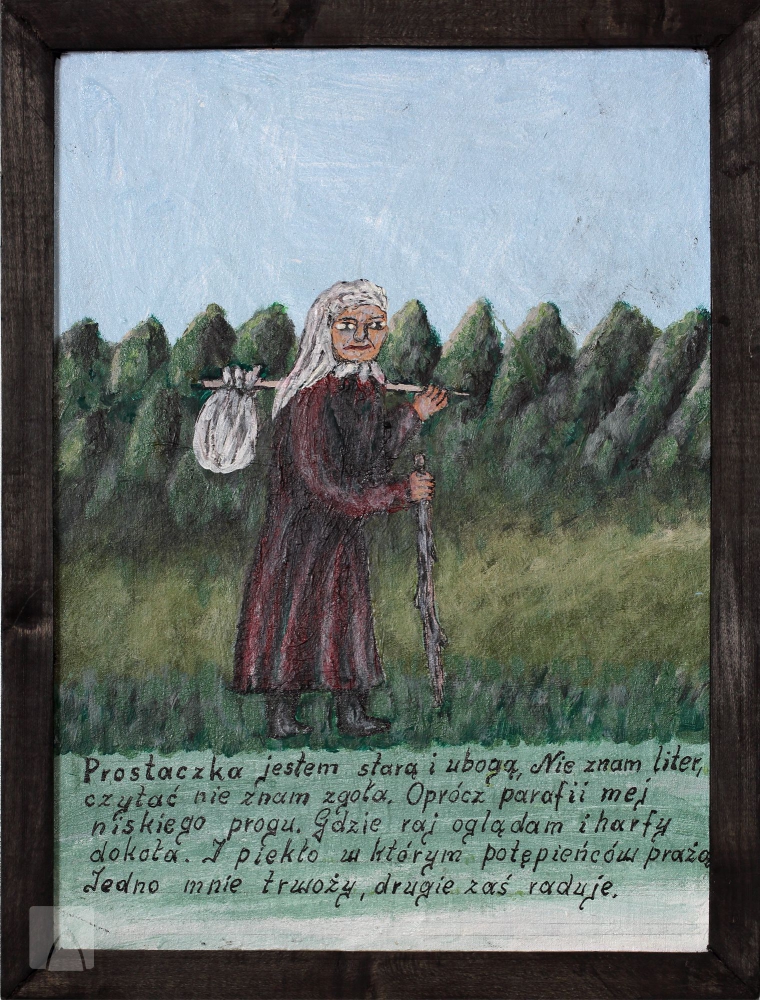 Prostaczka jestem starą i ubogą, Nie znam liter,
czytać nie znam zgoła. Oprócz parafii mej
niskiego progu. Gdzie raj oglądam i harfy
dokoła. I piekło w którym potępieńców prażą
Jedno mnie trwoży, drugie zaś raduje.